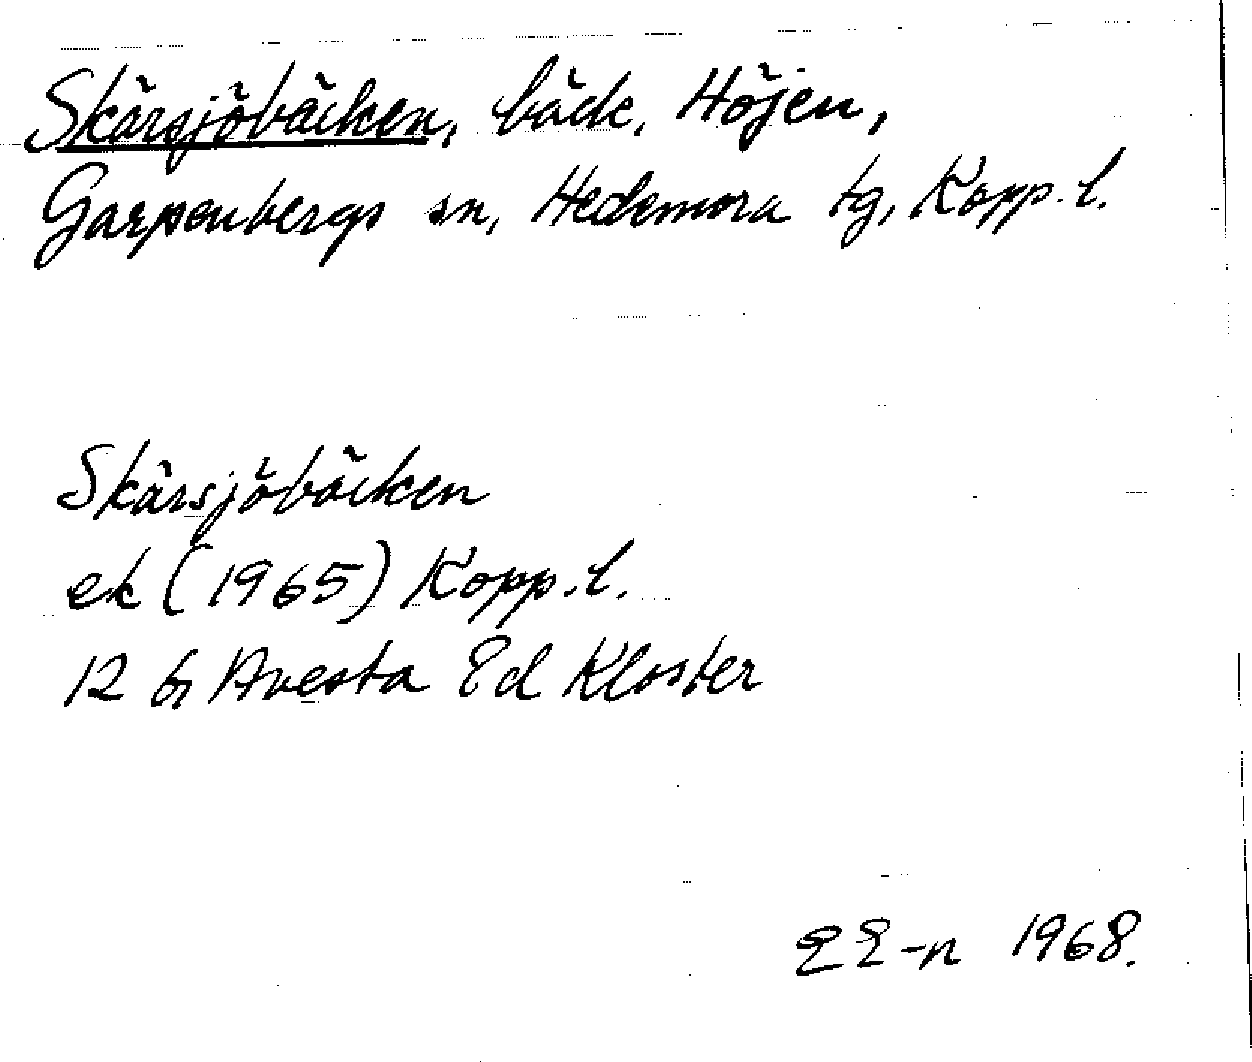 Skärsjöbäcken, bäck, Höjen,
Garpenbergs sn, Hedemora tg, Kopp. l.
Skärsjöbäcken
ek (1965) Kopp. l.
12 G Avesta 8d Kloster
EE-n 1968.